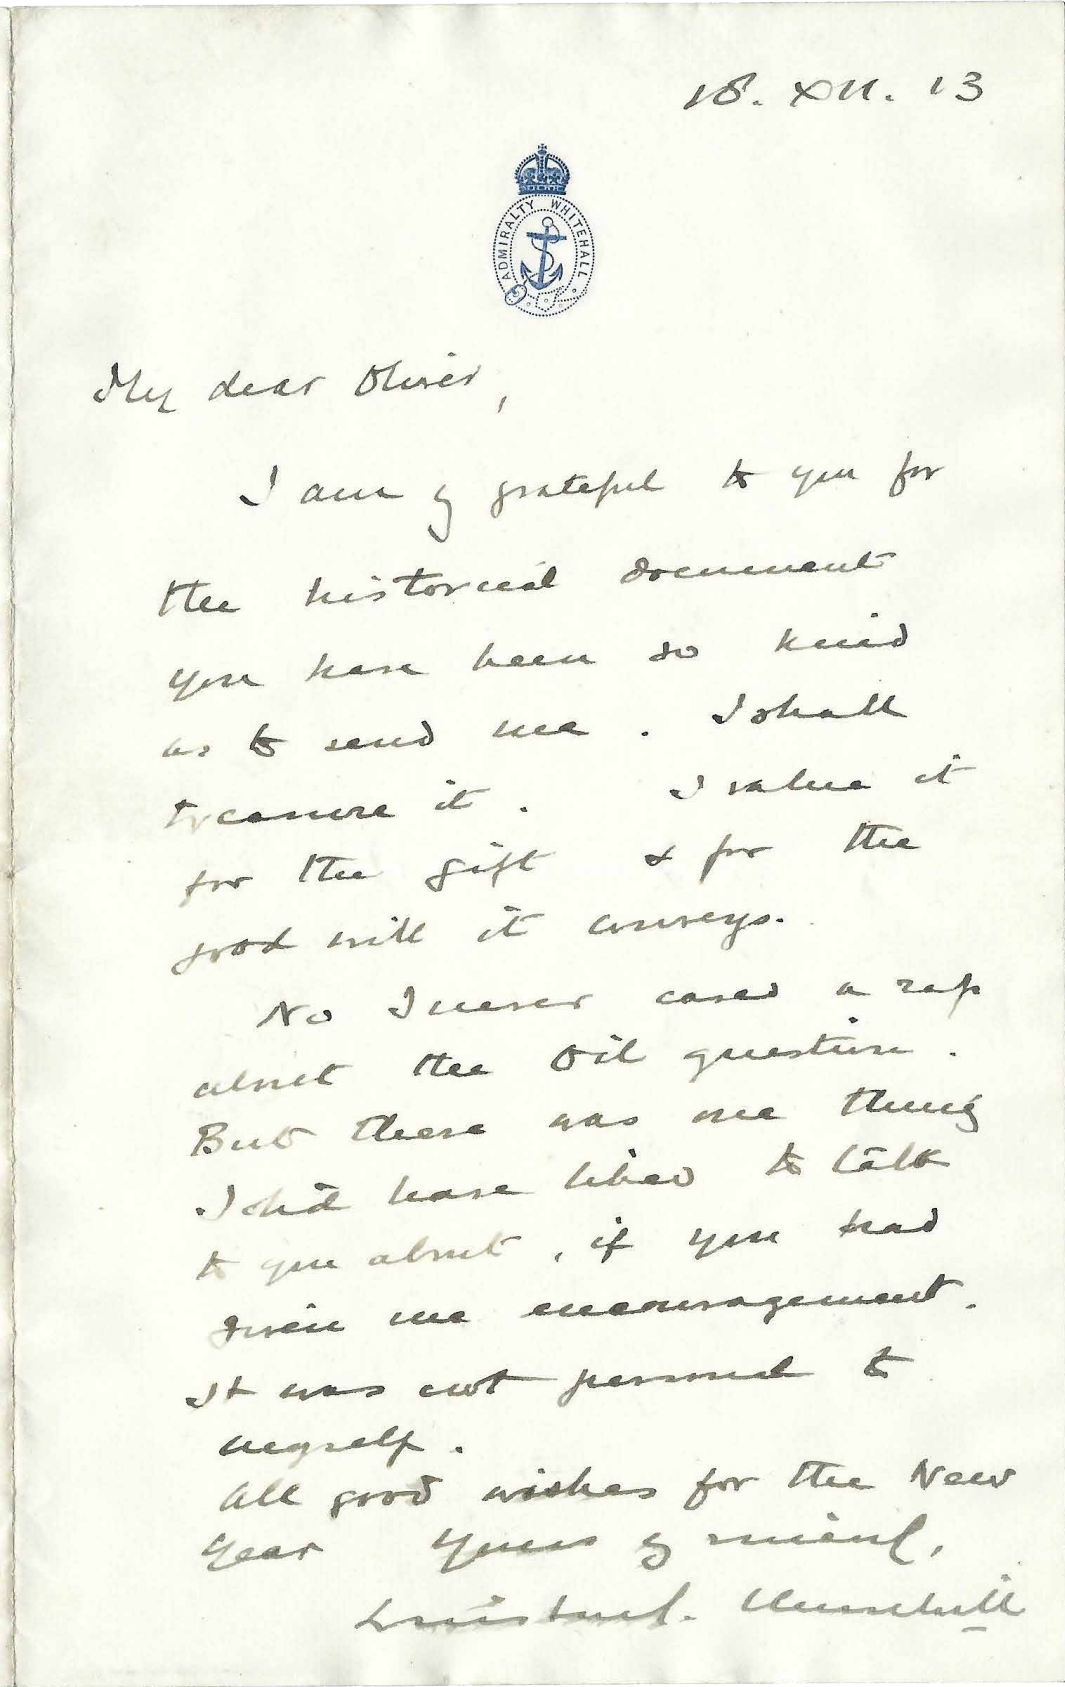 18. XII. 13
ADMIRALTY WHITEHALL
My dear Oliver,
I am vy grateful to you for
the historical document
you have been so kind
as to send me. I shall
treasure it. I value it
for the gift & for the
good will it conveys.
No I never cared a rap
about the Oil question.
But there was one thing
I shd have liked to talk
to you about, if you had
given me encouragement.
It was not personal to
myself.
All good wishes for the New
Year Yours vy sincely,
Winston S. Churchill